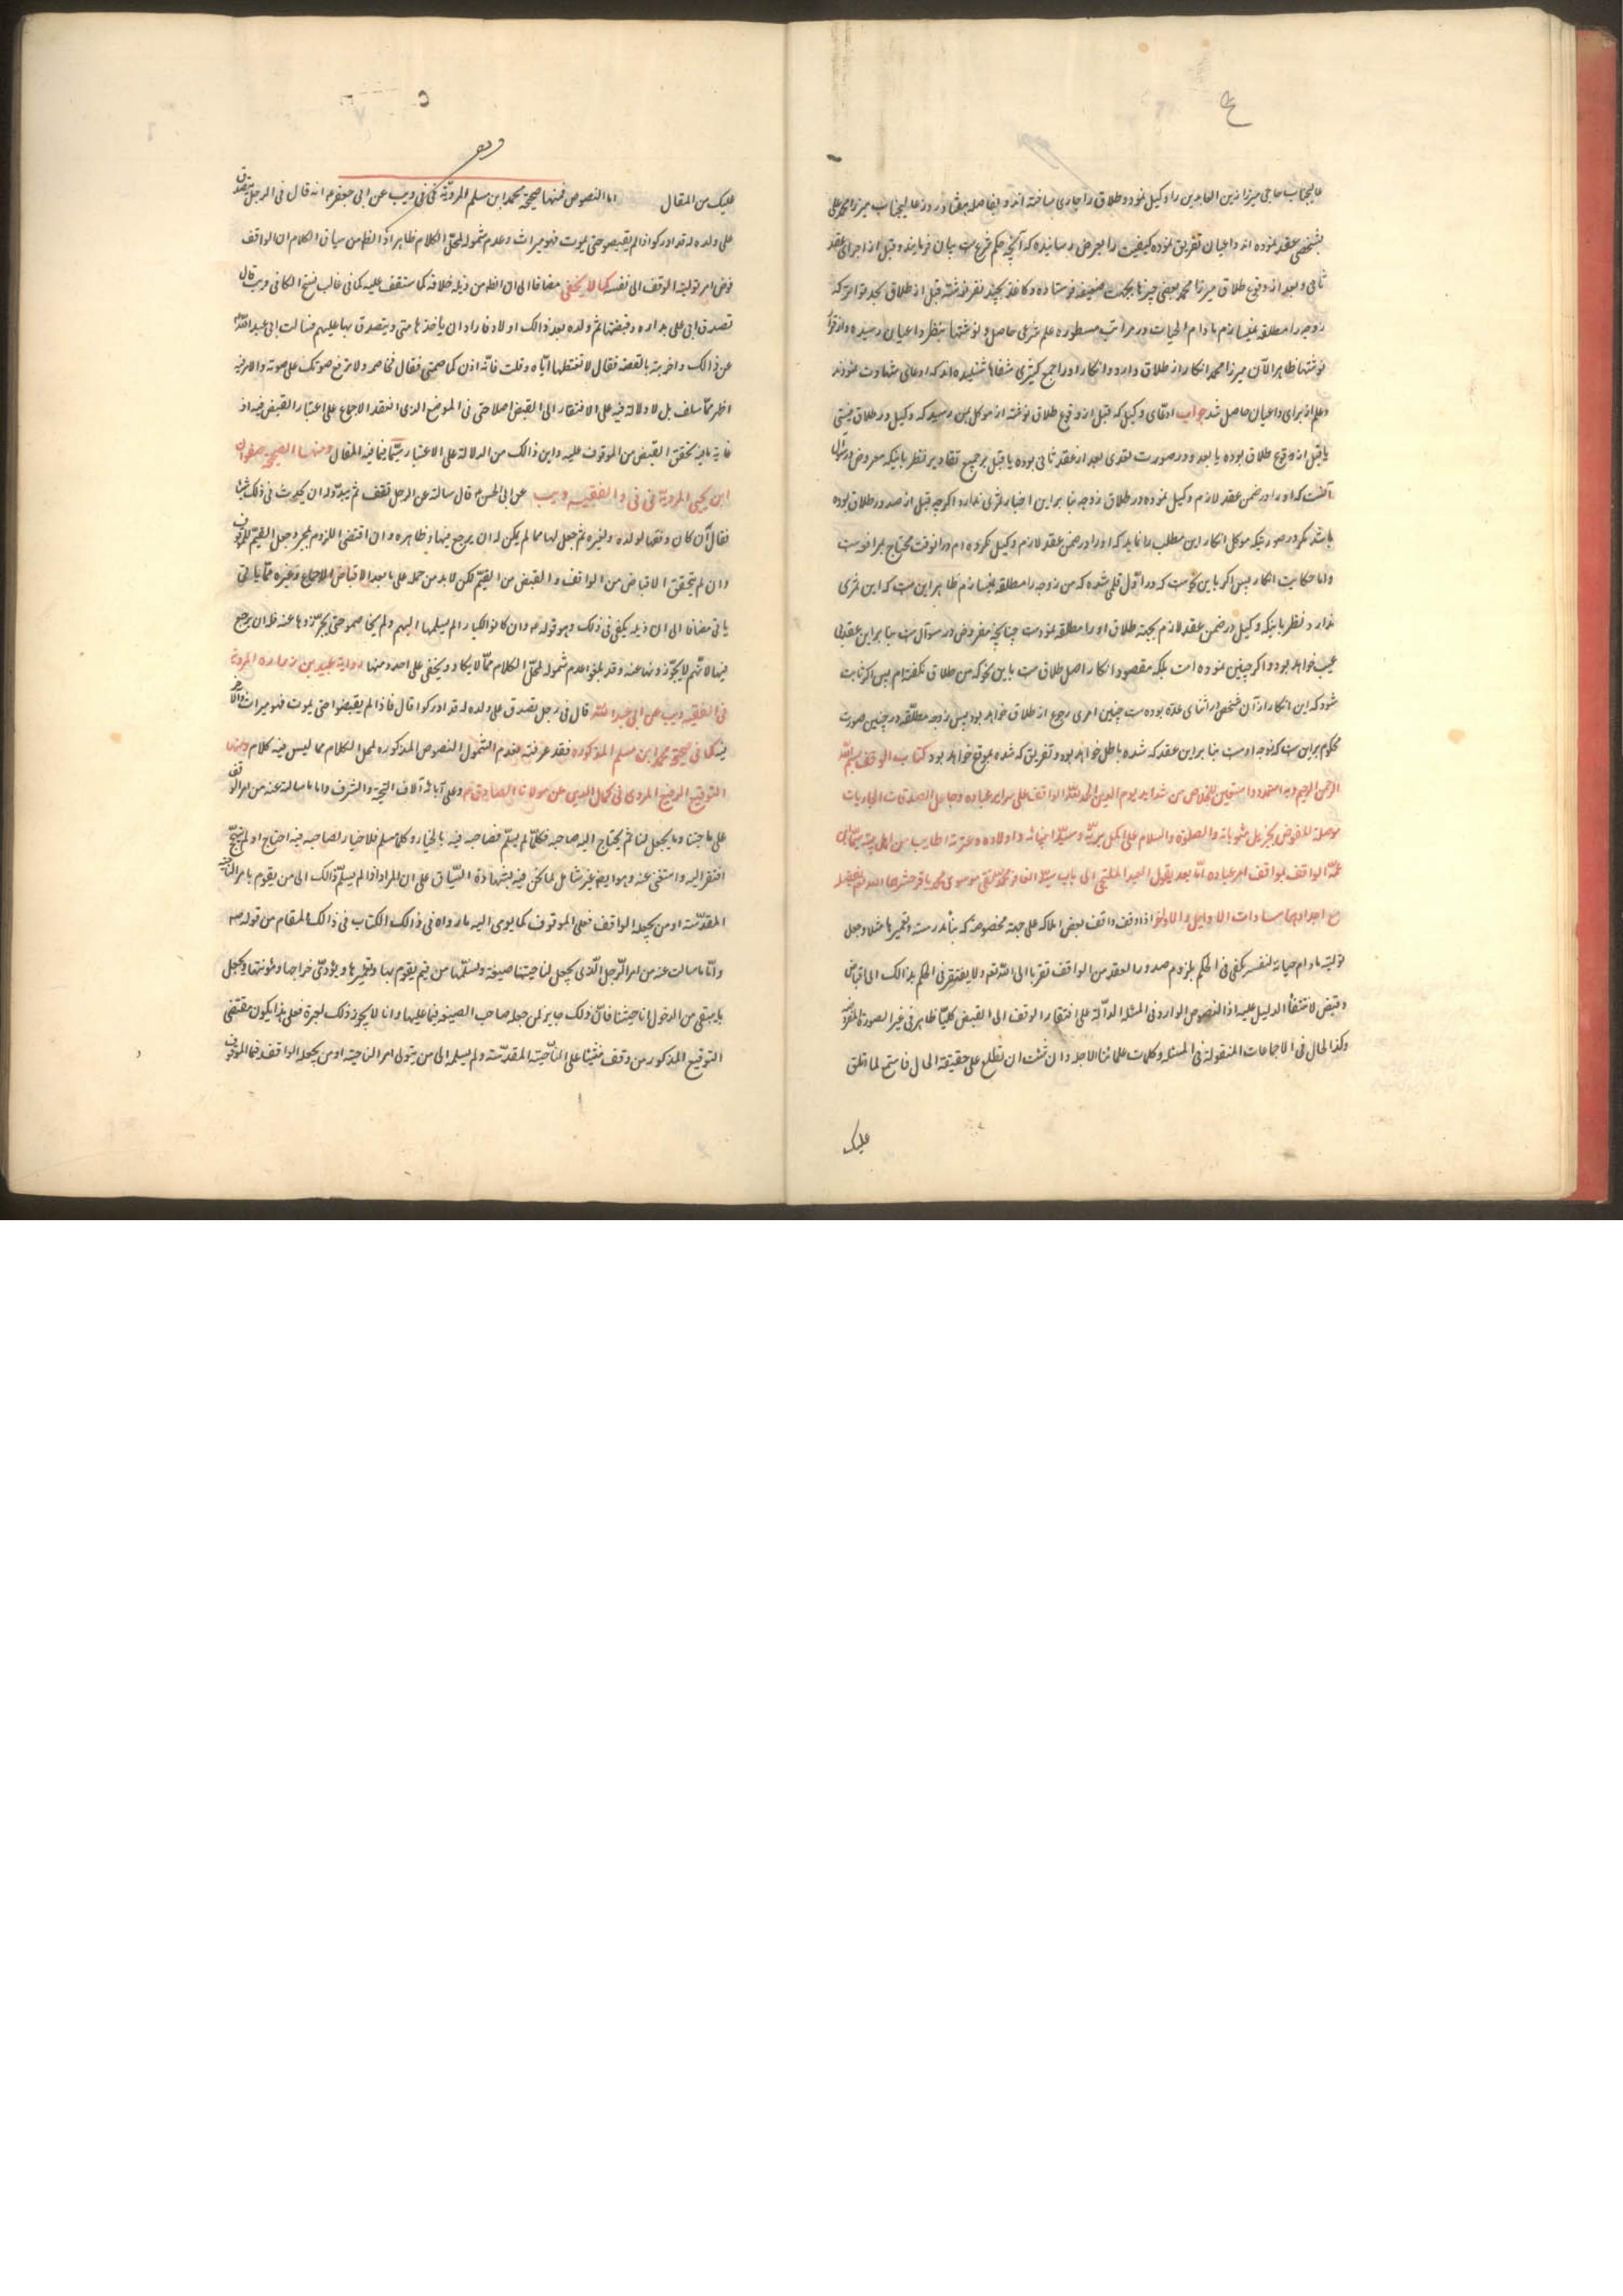 ۴
عالیجناب حاجی میرزا زین العابدین را وکیل نموده و طلاق را جاری ساخته اند و بفاصله هفتاد روز عالیجناب میرزا محمد علی
بشخصی عقد نموده اند داعیان تفریق نموده کیفیت را بعرض رسانیده که آنچه حکم شرع ست بیان فرمایند و قبل از اجرای عقد
ثانی و بعد از وقوع طلاق میرزا محمد بعضی چیزها بجهت ضعیفه فرستاده و کاغذ بچند نفر نوشته قبل از طلاق بحد تواتر که
زوجه را مطلقه نمیسازم مادام الحیات و در مراتب مسطوره علم شرعی حاصل و نوشتها بنظر داعیان رسیده و از قرار
نوشتها ظاهر الآن میرزا محمد انکار از طلاق دارد و انکار او را جمع کثیری شفاها شنیده اند که ادعای شهادت نمودند
و علم از برای داعیان حاصل شد جواب ادعای وکیل که قبل از وقوع طلاق نوشته از موکل بمن رسید که وکیل در طلاق نیستی
یا قبل از وقوع طلاق بوده یا بعد و در صورت بعدی بعد از عقد ثانی بوده یا قبل بر جمیع تقادیر نظر باینکه معروض در سؤال
آنست که او را در ضمن عقد لازم وکیل نموده در طلاق زوجه بنا بر این اخبار ثمری ندارد اگرچه قبل از صدور طلاق بوده
باشد مگر در صورتیکه موکل انکار این مطلب را نماید که او را در ضمن عقد لازم وکیل نکرده ام در آنوقت محتاج بمرافعه ست
و اما حکایت انکار پس اگر باین نحو ست که در اول قلمی شده که من زوجه را مطلقه نمیسازم ظاهر این ست که این ثمری
ندارد نظر باینکه وکیل در ضمن عقد لازم بجهة طلاق او را مطلقه نمودست چنانچه مفروض در سؤال ست بنا بر این عقد بی
عیب خواهد بود و اگر چنین نموده است بلکه مقصود انکار اصل طلاق ست باین نحو که من طلاق نگفته ام پس اگر ثابت
شود که این انکار از آن شخص در اثنای عده بوده ست چنین امری رجوع از طلاق خواهد بود پس زوجه مطلقه در چنین صورت
محکوم بر این ست که زوجه اوست بنا بر این عقد که شده باطل خواهد بود و تفریق که شده بموقع خواهد بود کتاب الوقف بسم الله
الرحمن الرحیم و به استمد و استعین للخلاص من شداید یوم الدین الحمد لله الواقف علی سرایر عباده و جاعل الصدقات الجاریات
موصلة للخوض بجزیل مثوباته والصلوة والسلام علی اکمل بریته و سید انبیائه و اولاده و عترته اطایب من اهل بیته سیما ابن
عمه الواقف لمواقف امر عباده اما بعد یقول العبد الملتجی الی باب سید الغافر محمد تقی موسوی محمد باقر حشرهما الله تعم بفضله
مع اجدادهما سادات الاوایل والاواخر اذا وقف واقف بعض املاکه علی جهة مخصوصة کبناء مدرسته و تعمیرها مثلا و جعل
تولیته مادام حیاته لنفسه یکفی فی الحکم بلزومه صدور العقد من الواقف تقربا الی الله تعم ولا یفتقر فی الحکم بذالک الی اقباض
و قبض لانتفاء الدلیل علیه اذ النصوص الواردة فی المسئله الدالة علی افتقار الوقف الی القبض کلیتا ظاهر فی غیر الصورة المفروضة
وکذا الحال فی الاجماعات المنقولة فی المسئله و کلمات علمائنا الاجله و ان شئت ان تطلع علی حقیقة الحال فاستمع لما اتلق
علیک
۵
وقف
علیک من المقال اما النصوص فمنها صحیحة محمد ابن مسلم المرویة فی فی و یب عن ابی جعفر ع انه قال فی الرجل یتصدق
علی ولده له قد ادرکوا اذا لم یقبضوا حتی یموت فهو میراث و عدم شموله لمحل الکلام ظاهر اذ الظ من سیاق الکلام ان الواقف
فوض امر تولیته الوقف الی نفسه کما لا یخفی مضافا الی ان الظ من ذیله خلافه کما ستقف علیه کما فی غالب نسخ الکافی و یب قال
تصدق ابی علی بداره و قبضتها ثم ولده بعد ذالک اولاد فاراد ان یاخذها منی و یتصدق بها علیهم فسالت ابی عبد الله ع
عن ذالک و اخبرته بالقصة فقال لا تعطها ایاه و قلت فانه اذن یخاصمنی فقال فخاصمه ولا ترفع صوتک علی صوته والامر فیه
اظهر مما سلف بل لا دلالة فیه علی الافتقار الی القبض اصلا حتی فی الموضع الذی انعقد الاجماع علی اعتبار القبض فیه اذ
غایة ما فیه تحقق القبض من الموقوف علیه و این ذالک من الدلالة علی الاعتبار سیما فیما فیه المقال و منها الصحیحة صفوان
ابن یحیی المرویة فی فی و الفقیه و یب عن ابی الحسن ع قال سالته عن الرجل تقف ثم یبدو له ان یحدث فی ذلک شیئا
فقال ان کان وقفها لولده و لغیره ثم جعل لها قیما لم یکن له ان یرجع فیها و ظاهره و ان اقتضی اللزوم بمجرد جعل القیم للموقوف
و ان لم یتحقق الاقباض من الواقف و القبض من القیم لکن لا بد من حمله علی ما بعد الاقباض للاجماع و غیره مما یاتی
یاتی مضافا الی ان ذیله یکفی فی ذلک و هو قوله ع و ان کانوا کبارا لم یسلمها الیهم ولم یخاصموا حتی یحوزوها عنه فله ان یرجع
فیها لانهم لا یحوزونها عنه و قد بلغوا عدم شموله لمحل الکلام مما لا یکاد و یخفی علی احد و منها روایة عبید بن زراره المرویة
فی الفقیه و یب عن ابی عبد الله قال فی رجل تصدق علی ولده له قد ادرکوا قال فاذا لم یقبضوا حتی یموت فهو میراث والامر
فیه کما فی صحیحة محمد ابن مسلم المذکوره فقد عرفته فعدم الشمول النصوص المذکوره لمحل الکلام مما لیس فیه کلام و منها
التوقیع الرفیع المروی فی کمال الدین عن مولانا الصاحب ع و علی آبائه آلاف التحیة والشرف و اما ما سالت عنه من امر الوقف
علی ناحیتنا و ما یجعل لنا ثم یحتاج الیه صاحبه فکلما لم یسلم فصاحبه فیه بالخیار و کلما سلم فلا خیار لصاحبه فیه احتاج او لم یحتج
افتقر الیه و استغنی عنه و هو ایضا غیر شامل لما نحن فیه بشهادة السیاق علی ان المراد اذا لم یسلم ذالک الی من یقوم بامر الناحیة
المقدسة او من یجعله الواقف فعلی الموقوف کما یومی الیه ما رواه فی ذالک الکتاب فی ذالک المقام من قوله ص
و اما ما سالت عنه من امر الرجل الذی یجعل لناحیتنا ضیعة و یسلمها من قیم یقوم بها و تعمیرها و یؤدی خراجها و مؤنتها و یجعل
ما یبقی من الدخل لناحیتنا فان ذلک جایز لمن جعله صاحب الضیعه قیما علیها و انا لا یجوز ذلک لغیره فعلی هذا یکون مقتضی
التوقیع المذکور من وقف شیئا علی الناحیة المقدسة ولم یسلمه الی من یتولی امر الناحیة او من یجعله الواقف قیما الموقوف